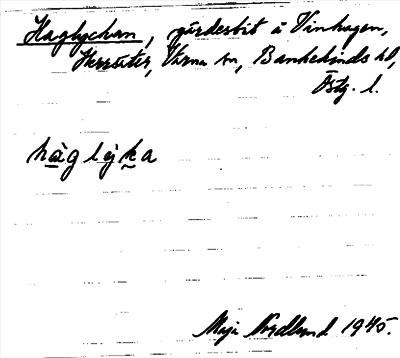 Haglyckan, gärdesbit å Vinhagen,
Herrsäter, Värna sn, Bankekinds hd,
Östg. l.
hàglyka
Maja Nordlund 1945.